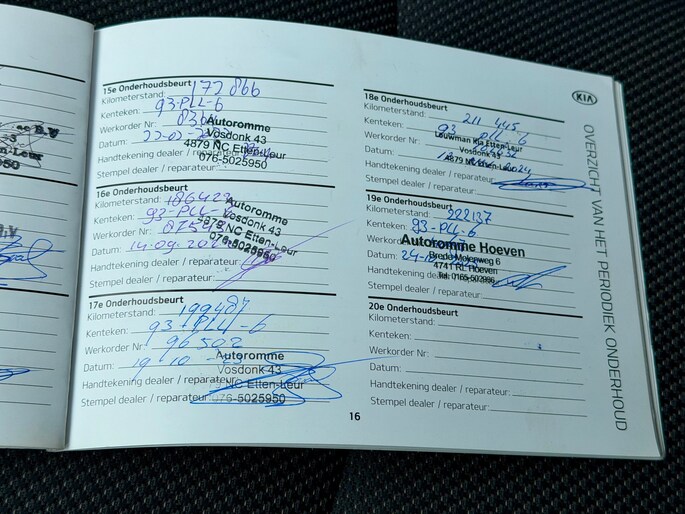 15e Onderhoudsbeurt
Kilometerstand: 172866
Kenteken: 93-PLL-6
Werkorder Nr:
Datum:
Autoromme
Vosdonk 43
4879 NC Etten-Leur
076-5025950
Handtekening dealer / reparateur
Stempel dealer / reparateur
16e Onderhoudsbeurt
Kilometerstand: 186423
Kenteken: 93-PLL-6
Werkorder Nr:
Datum: 14.09.202
Autoromme
Vosdonk 43
4879 NC Etten-Leur
076-5025950
Handtekening dealer / reparateur
Stempel dealer / reparateur
17e Onderhoudsbeurt
Kilometerstand: 199487
Kenteken: 93-PLL-6
Werkorder Nr: 96502
Datum: 19 10 - 23
Autoromme
Vosdonk 43
NC Etten-Leur
076-5025950
Handtekening dealer / reparateur
Stempel dealer / reparateur
18e Onderhoudsbeurt
Kilometerstand: 211 445
Kenteken: 93 PLL-6
Werkorder Nr:
Datum: 2024
Louwman Kia Etten-Leur
Vosdonk 43
4879 NC Etten-Leur
Handtekening dealer / reparateur
Stempel dealer / reparateur:
19e Onderhoudsbeurt
Kilometerstand: 222137
Kenteken: 93-PLL-6
Werkorder Nr:
Datum: 24-
Autoromme Hoeven
Brede Molenweg 6
4741 RL Hoeven
Tel: 0165-502996
Handtekening dealer / reparateur
Stempel dealer / reparateur:
20e Onderhoudsbeurt
Kilometerstand:
Kenteken:
Werkorder Nr:
Datum:
Handtekening dealer / reparateur:
Stempel dealer / reparateur:
16
KIA
OVERZICHT VAN HET PERIODIEK ONDERHOUD